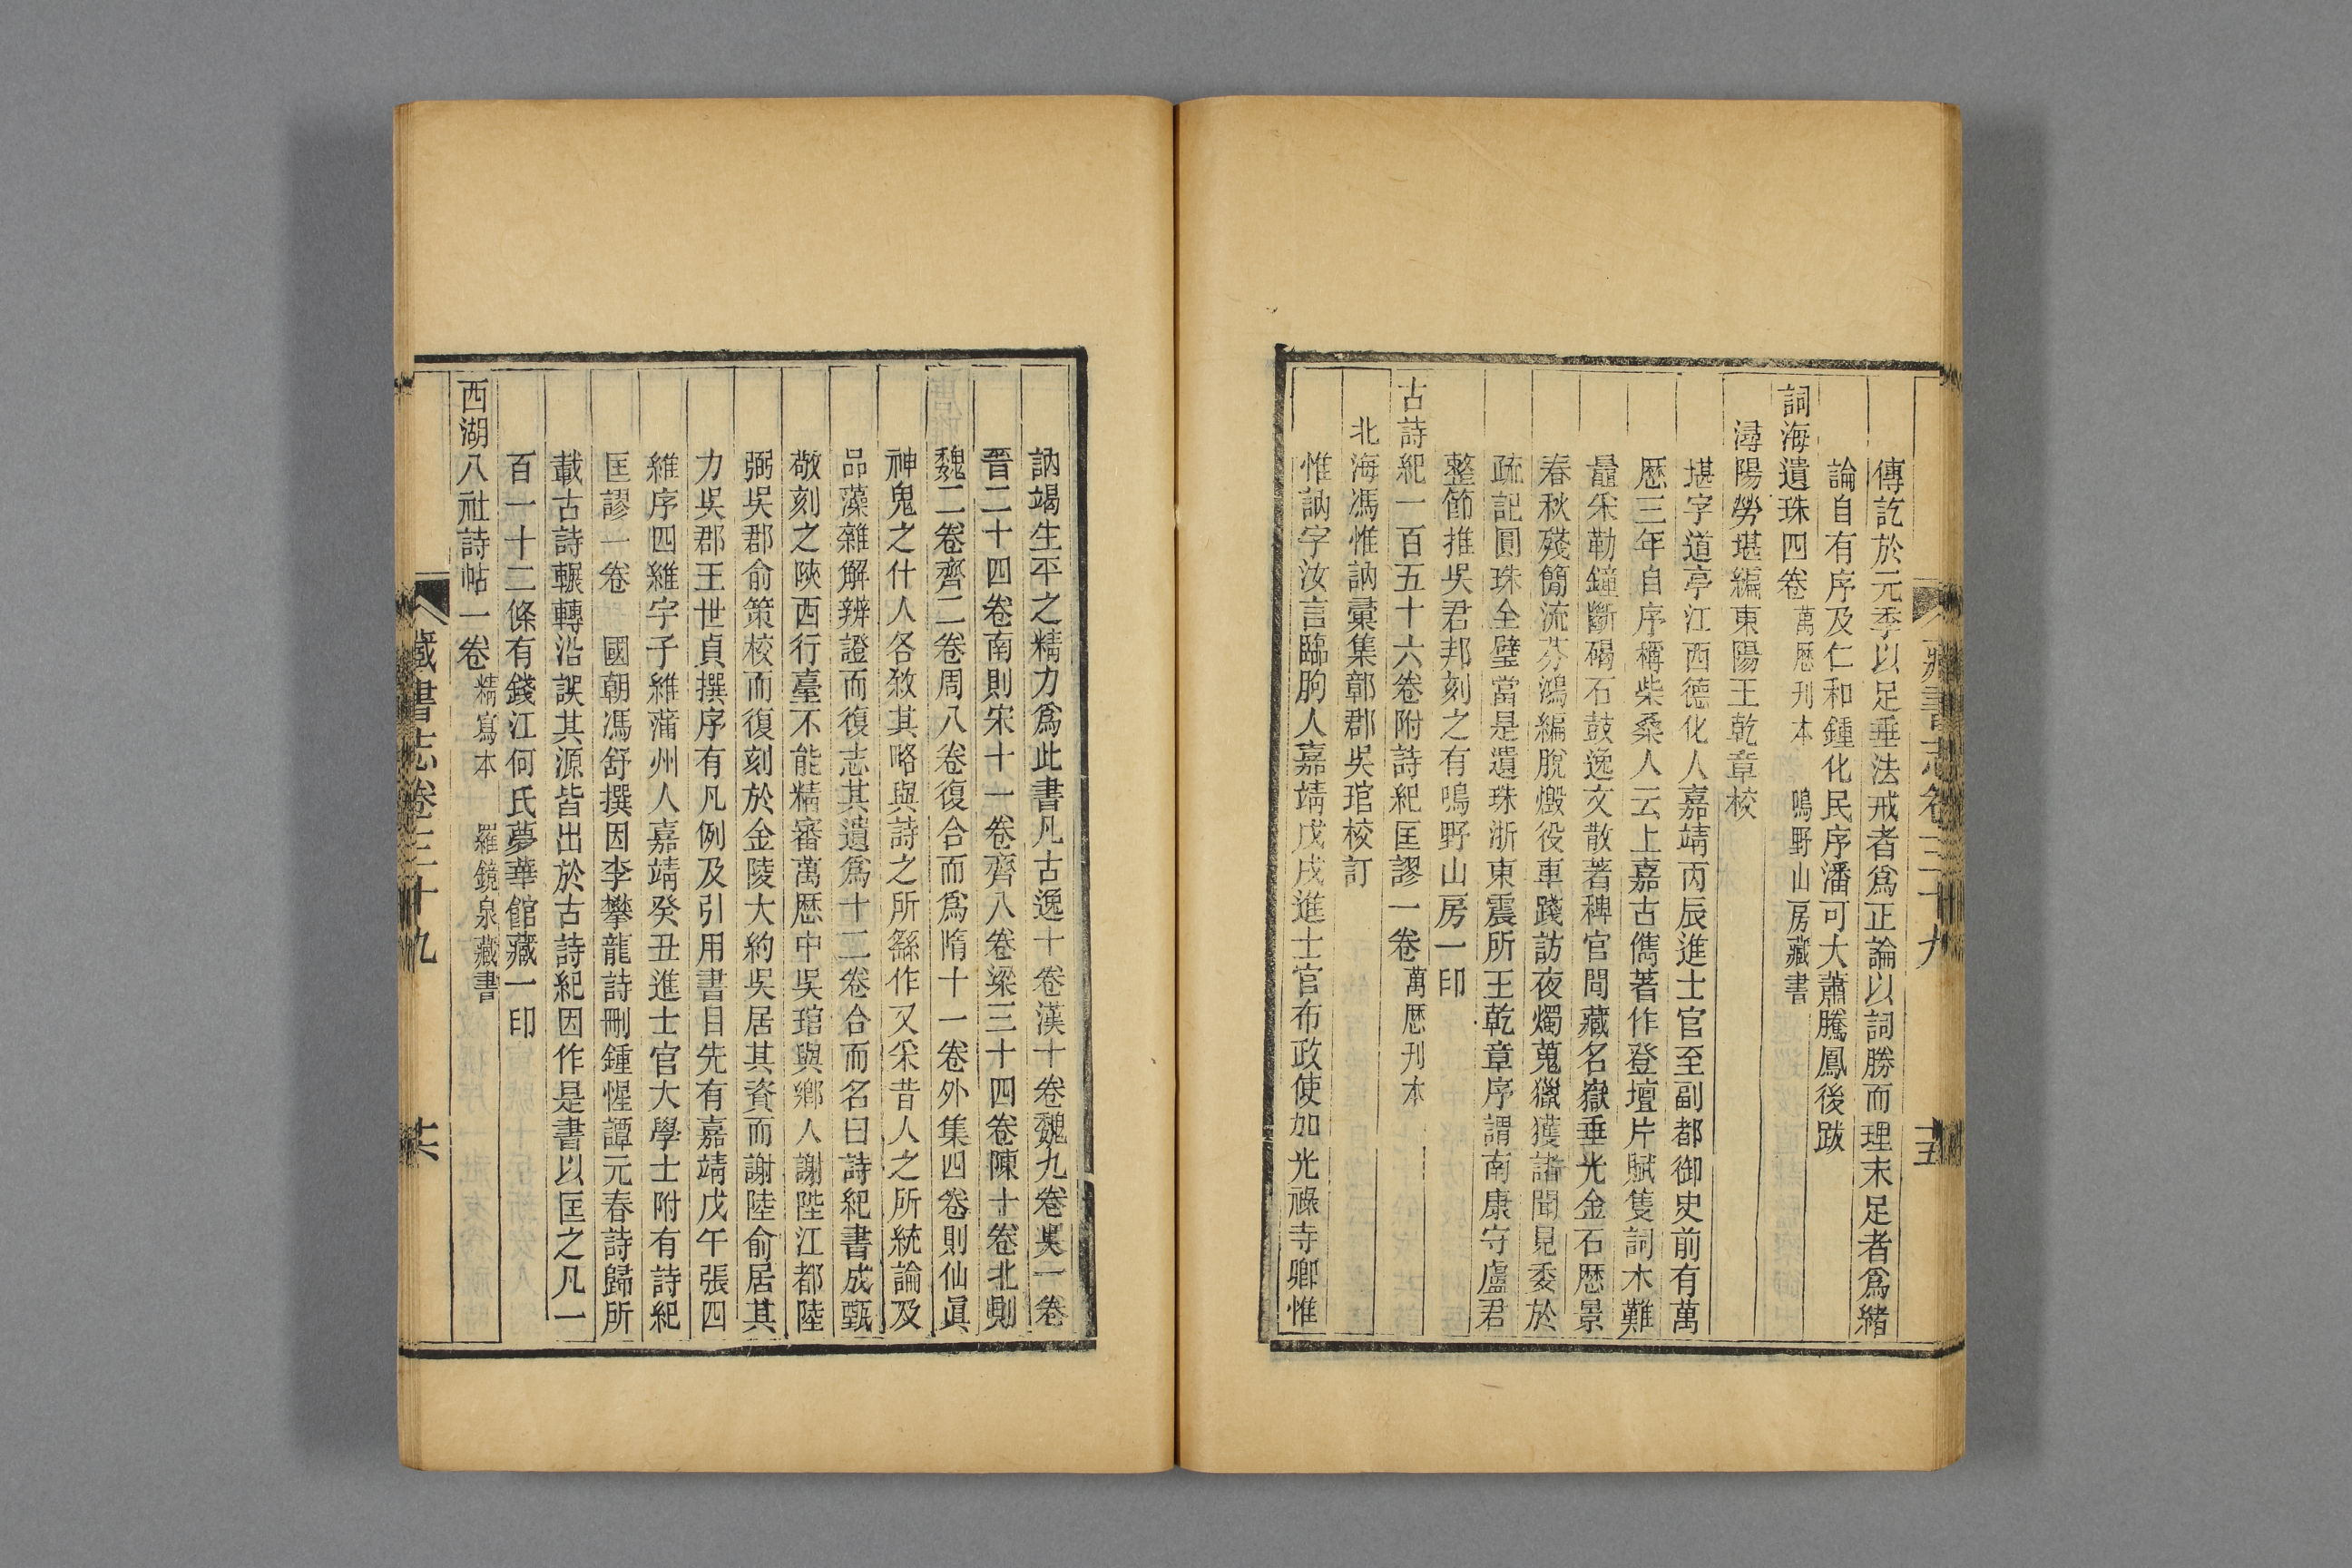 藏書志卷三十九
十五
傳訖於元季以足垂法戒者爲正論以詞勝而理未足者爲緒
論自有序及仁和鍾化民序潘可大蕭騰鳳後跋
詞海遺珠四卷 萬歷刊本 鳴野山房藏書
潯陽勞堪編東陽王乾章校
堪字道亭江西德化人嘉靖丙辰進士官至副都御史前有萬
歷三年自序稱柴桑人云上嘉古儁著作登壇片賦隻詞木難
鼂釆勒鐘斷碣石鼓逸文散著稗官問藏名嶽垂光金石歷景
春秋殘簡流芬鴻編脫燬役車踐訪夜燭蒐獵獲諸聞見委於
疏記圓珠全璧當是遺珠浙東震所王乾章序謂南康守盧君
整節推吳君邦刻之有鳴野山房一印
古詩紀一百五十六卷附詩紀匡謬一卷 萬歷刊本
北海馮惟訥彙集鄣郡吳琯校訂
惟訥字汝言臨朐人嘉靖戊戌進士官布政使加光祿寺卿惟
訥竭生平之精力爲此書凡古逸十卷漢十卷魏九卷吳一卷
晉二十四卷南則宋十一卷齊八卷梁三十四卷陳十卷北則
魏二卷齊二卷周八卷復合而爲隋十一卷外集四卷則仙眞
神鬼之什人各敘其略與詩之所繇作又釆昔人之所統論及
品藻雜解辨證而復志其遺爲十二卷合而名曰詩紀書成甄
敬刻之陝西行臺不能精審萬歷中吳琯與鄉人謝陛江都陸
弼吳郡俞策校而復刻於金陵大約吳居其資而謝陸俞居其
力吳郡王世貞撰序有凡例及引用書目先有嘉靖戊午張四
維序四維字子維蒲州人嘉靖癸丑進士官大學士附有詩紀
匡謬一卷 國朝馮舒撰因李攀龍詩刪鍾惺譚元春詩歸所
載古詩輾轉沿誤其源皆出於古詩紀因作是書以匡之凡一
百一十二條有錢江何氏夢華館藏一印
西湖八社詩帖一卷 精寫本 羅鏡泉藏書
藏書志卷三十九
十六